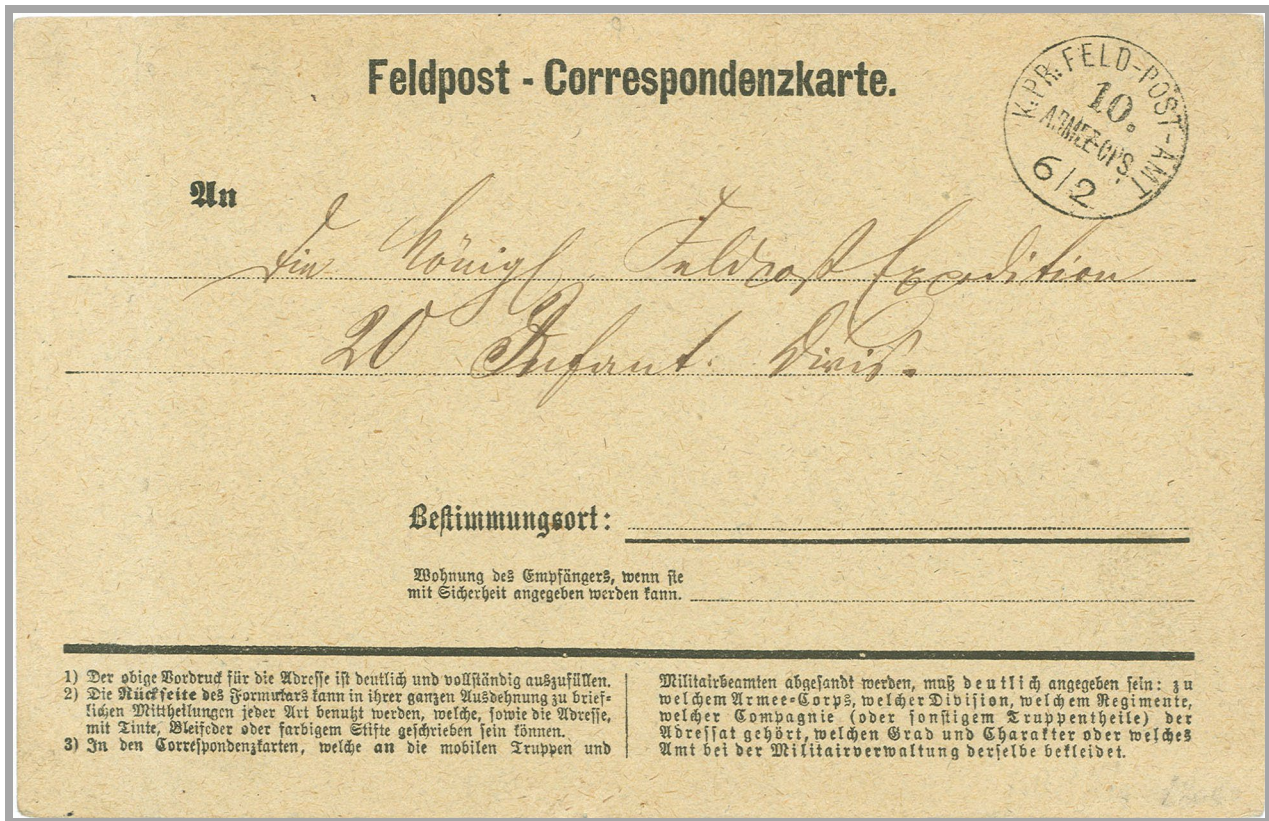 Feldpost - Correspondenzkarte.
K. PR. FELD-POST-AMT
10.
ARMEE-CPS.
6/2
An
die Königl. Feldpost Expedition
20 Infant. Divis.
Bestimmungsort:
Wohnung des Empfängers, wenn sie
mit Sicherheit angegeben werden kann.
1) Der obige Vordruck für die Adresse ist deutlich und vollständig auszufüllen.
2) Die Rückseite des Formulars kann in ihrer ganzen Ausdehnung zu brief-
lichen Mittheilungen jeder Art benutzt werden, welche, sowie die Adresse,
mit Tinte, Bleifeder oder farbigem Stifte geschrieben sein können.
3) In den Correspondenzkarten, welche an die mobilen Truppen und
Militairbeamten abgesandt werden, muß deutlich angegeben sein: zu
welchem Armee-Corps, welcher Division, welchem Regimente,
welcher Compagnie (oder sonstigem Truppentheile) der
Adressat gehört, welchen Grad und Charakter oder welches
Amt bei der Militairverwaltung derselbe bekleidet.